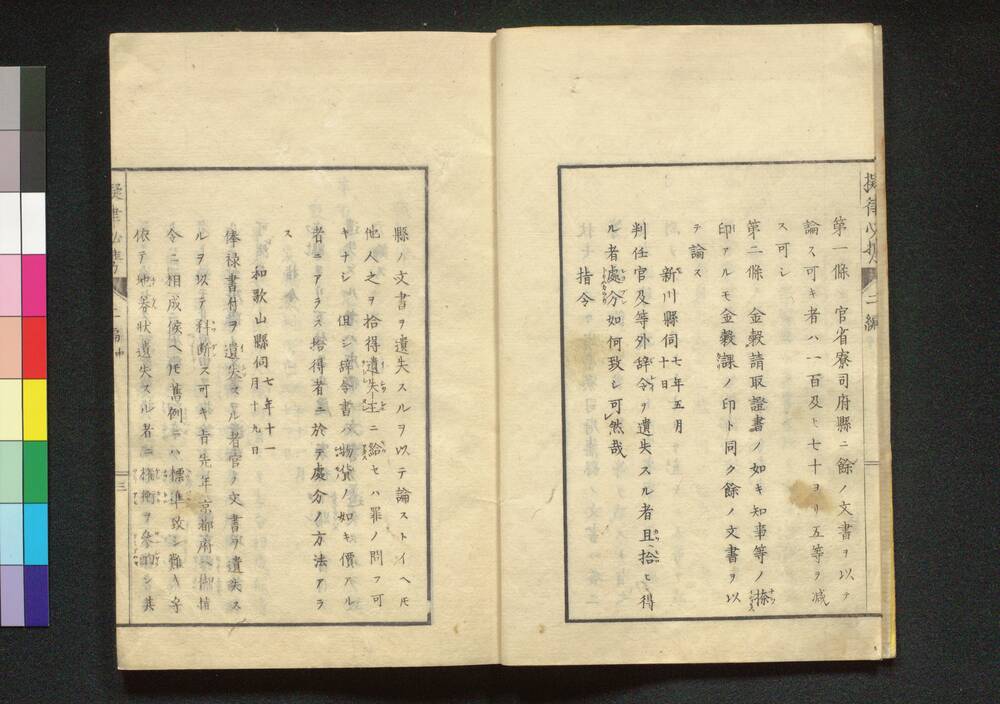 擬律必携 二編
第一條 官省寮司府縣ニ餘ノ文書ヲ以テ
論ス可キ者ハ一百及ヒ七十ヨリ五等ヲ減
ス可シ
第二條ノ金穀請取證書ノ如キ知事等ノ捺
印アルモ金穀課ノ印ト同ク餘ノ文書ヲ以
テ論ス
新川縣伺 七年五月十日
判任官及等外辞令ヲ遺失スル者且拾ヒ得
ル者處分如何致シ可然哉
指令
縣ノ文書ヲ遺失スルヲ以テ論ストイヘ𪜈
他人之ヲ拾得遺失主ニ給セハ罪ノ問フ可
キナシ但シ辞令書ハ物貨ノ如キ價アル
者ニアラス拾得者ニ於テ處分ノ方法アラ
ス
和歌山縣伺 七年十一月十九日
俸禄書付ヲ遺失スル者官ノ文書ヲ遺失ス
ルヲ以テ科断ス可キ旨先年京都府ヘ御指
令ニ相成候ヘ𪜈萬例ニハ標準致シ難ク
依テ地券状遺失スル者ニ権衡ヲ参酌シ其
擬律必携 二編 三